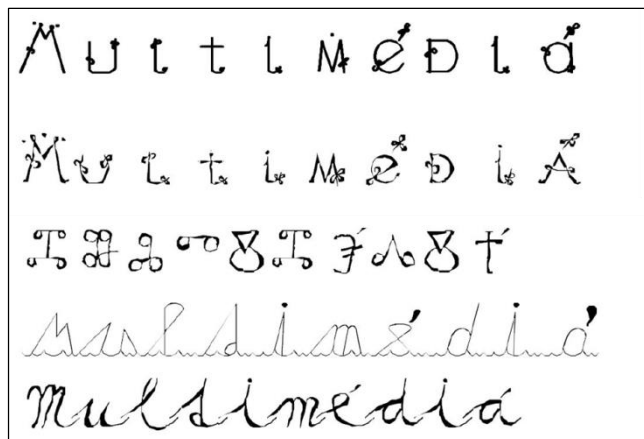 Multimédiá
MultimédiÁ
multimédiá
multimédiá